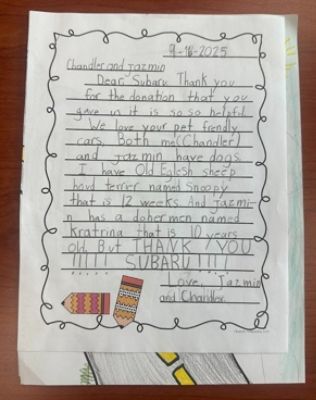 9-16-2025
Chandler and Jazmin
Dear, Subaru Thank you
for the donation that you
gave us it is so so helpful.
We love your pet friendly
cars. Both me(Chandler)
and Jazmin have dogs.
I have Old Eglesh sheep
hovd terrier named Snoopy
that is 12 weeks. And Jazmi-
n has a dobermen named
Kratrina that is 10 years
old. But THANK YOU
!!!!! SUBARU!!!!
Love, Jazmin
and Chandler